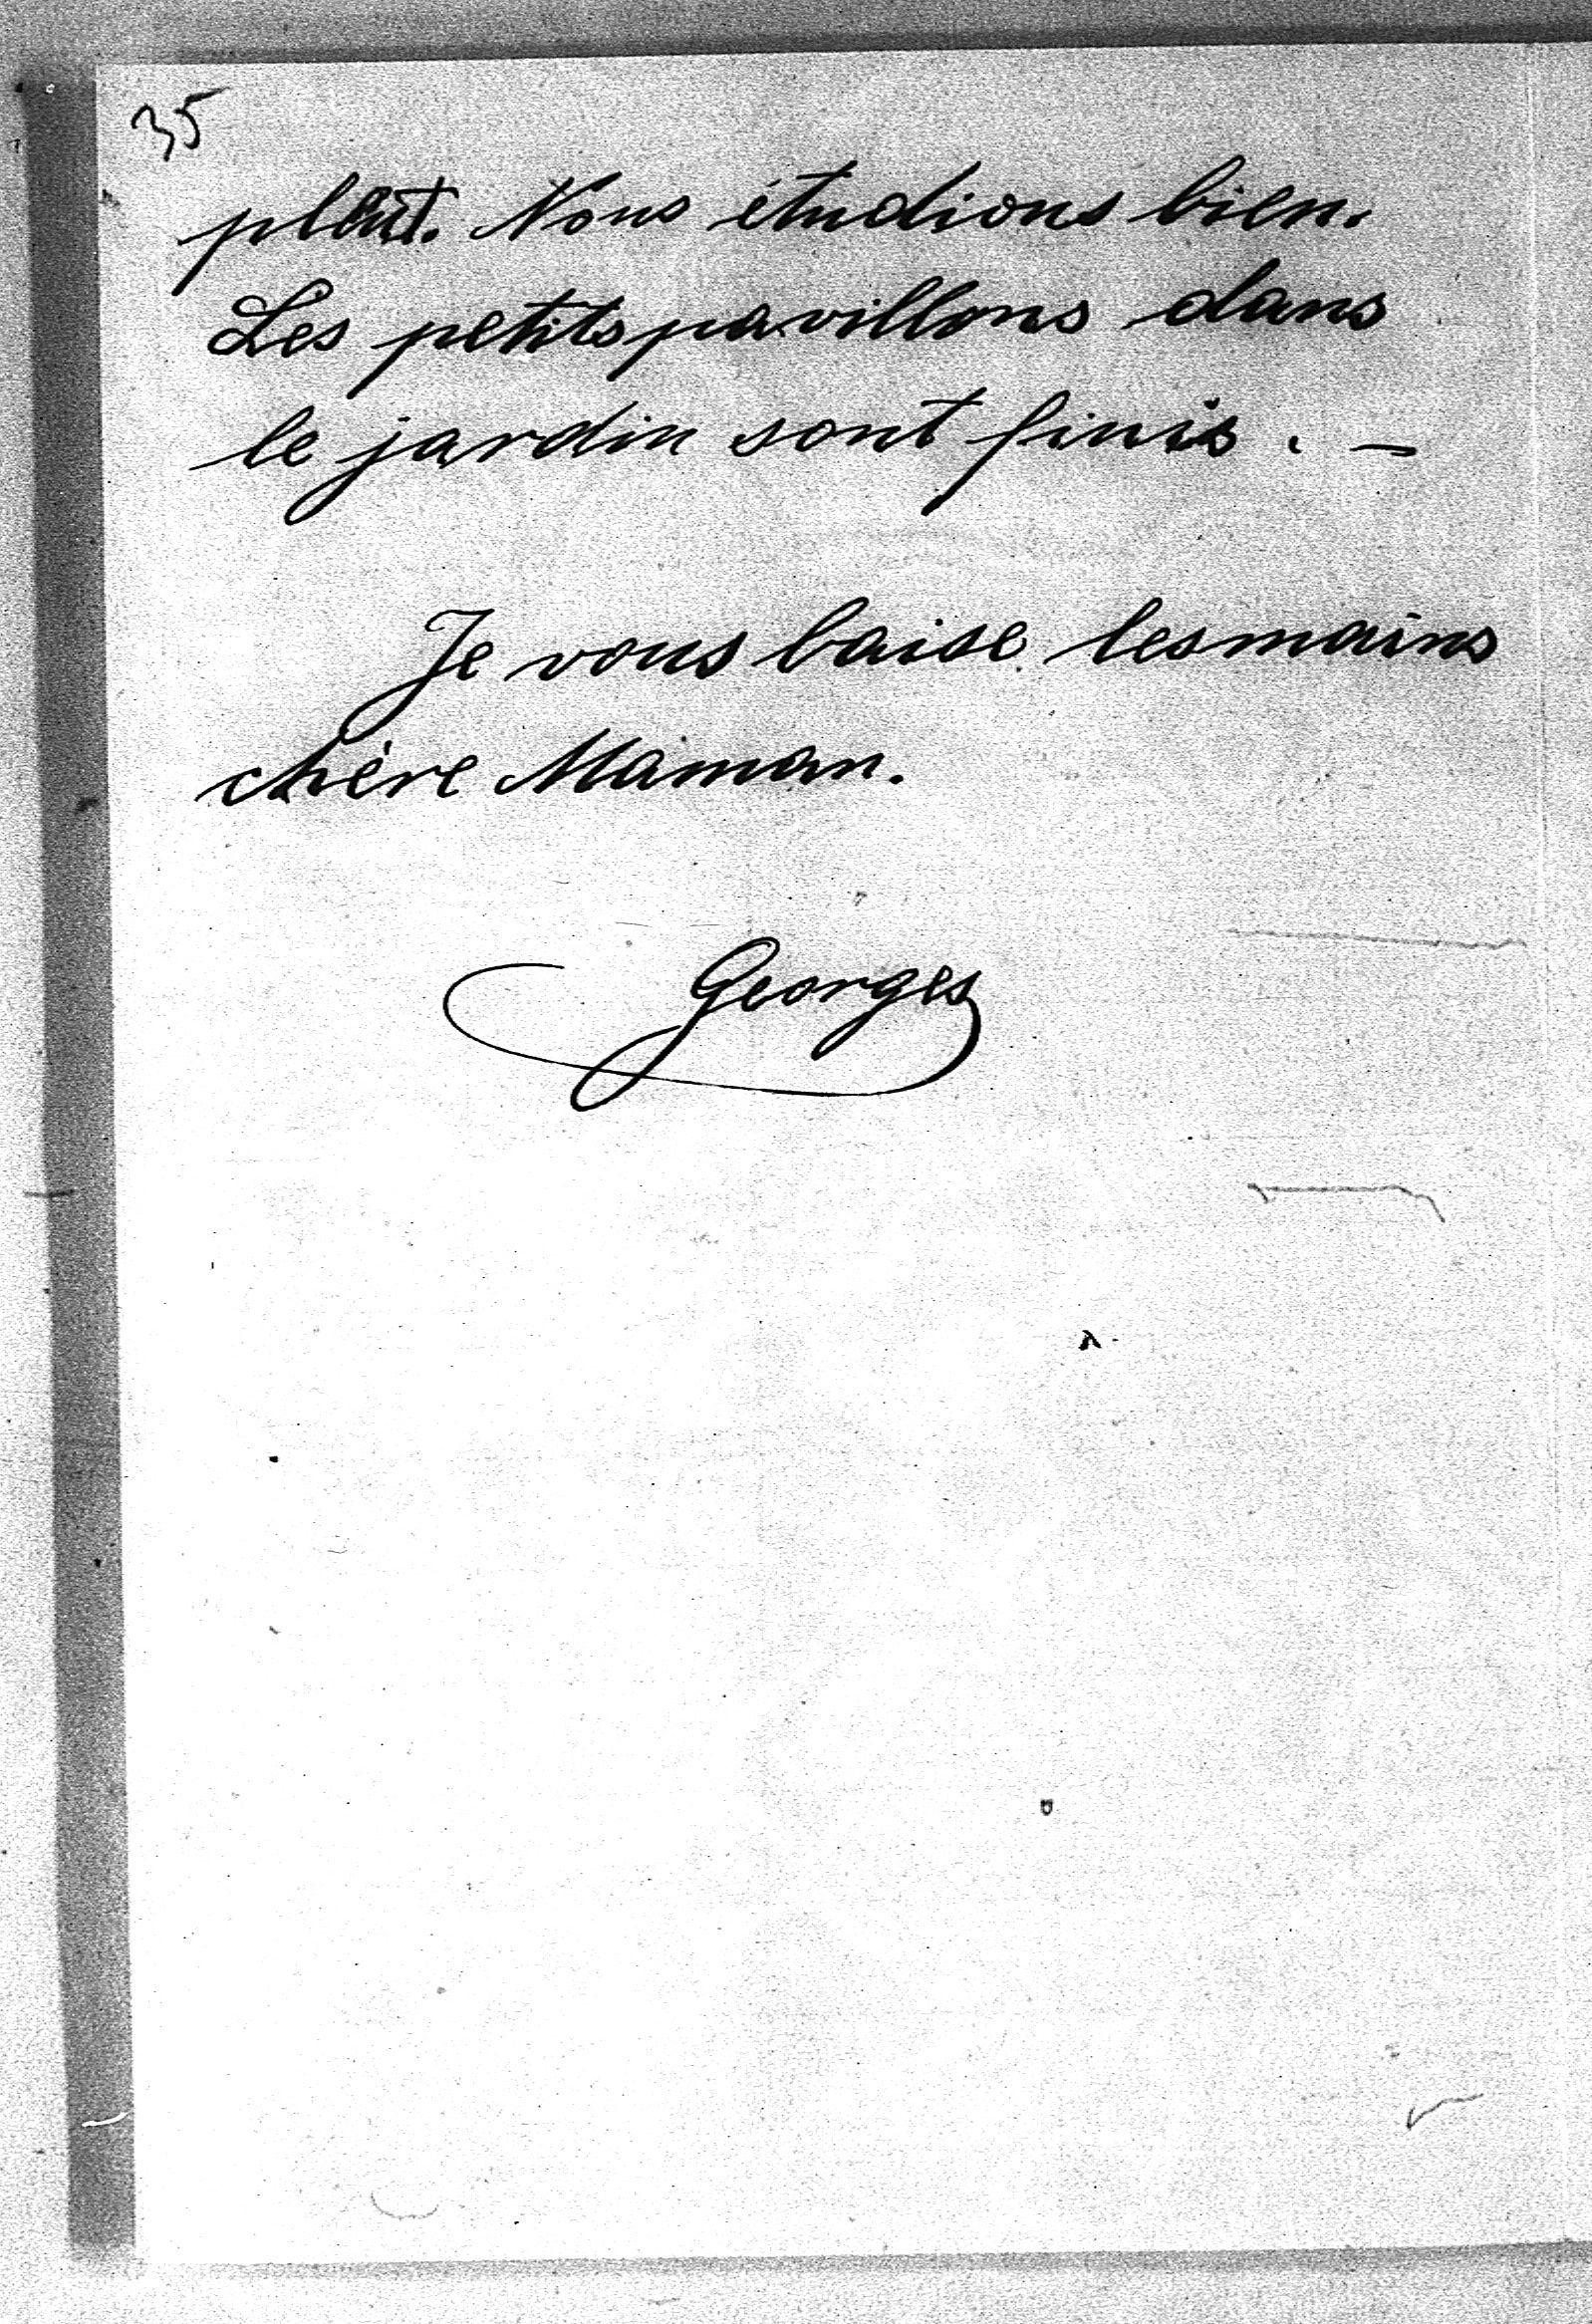 35
pleut. Nous étudions bien.
Les petits pavillons dans
le jardin sont finis. –
Je vous baise les mains
chère Maman.
Georges